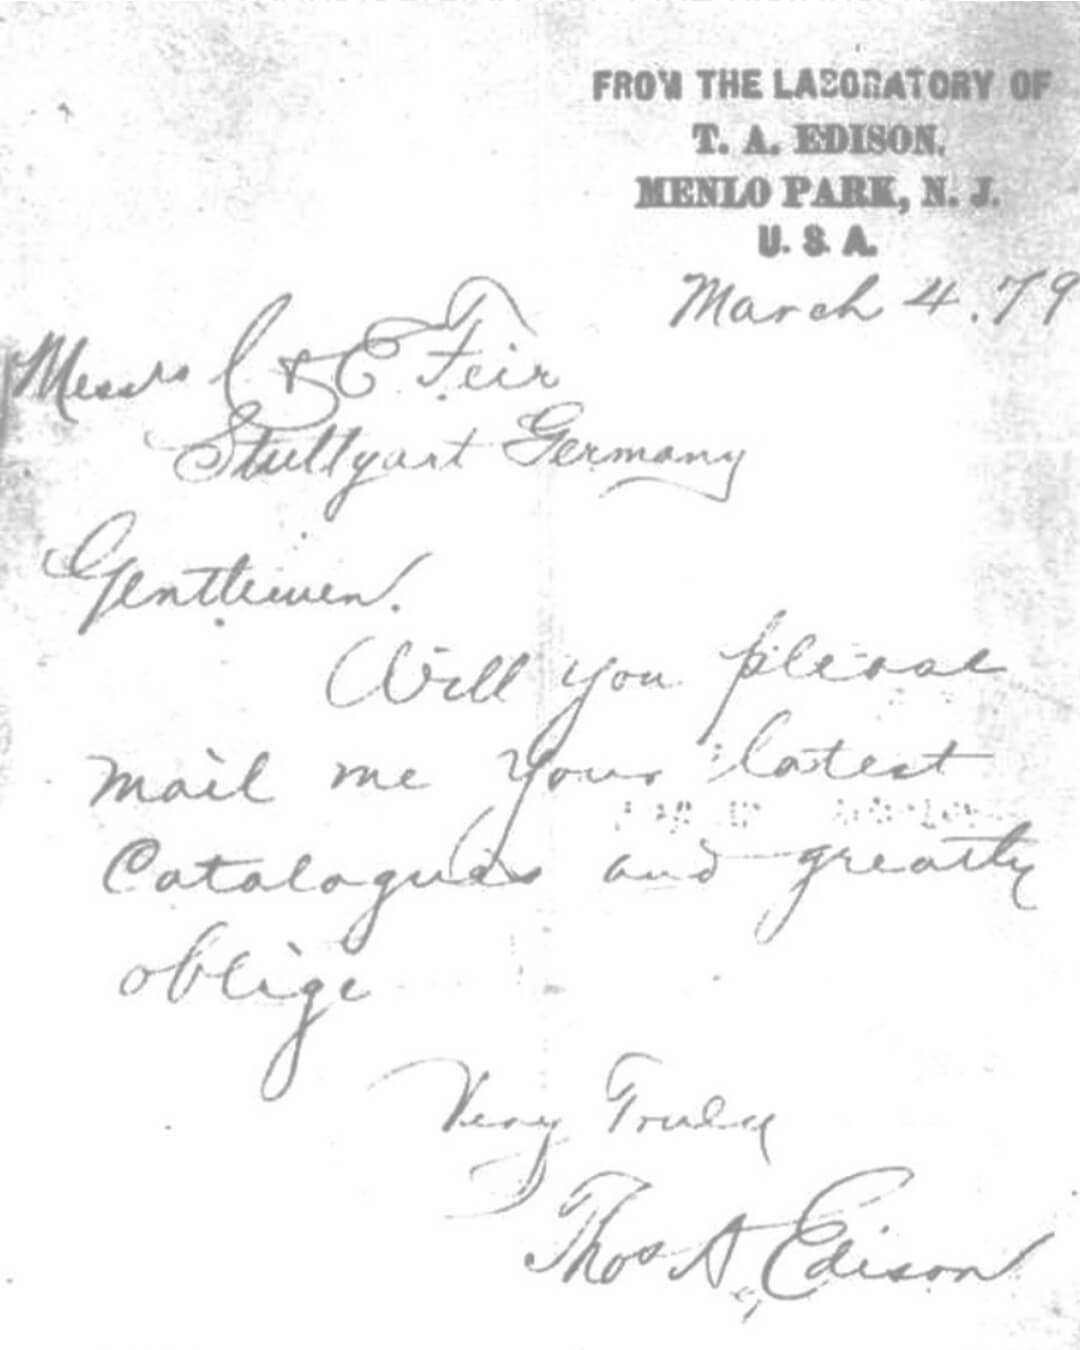 FROM THE LABORATORY OF
T. A. EDISON.
MENLO PARK, N. J.
U. S. A.
March 4. 79
Messrs C & E Feir
Stuttgart Germany
Gentlemen.
Will you please
mail me your latest
Catalogues and greatly
oblige
Very Truly
Thos A Edison